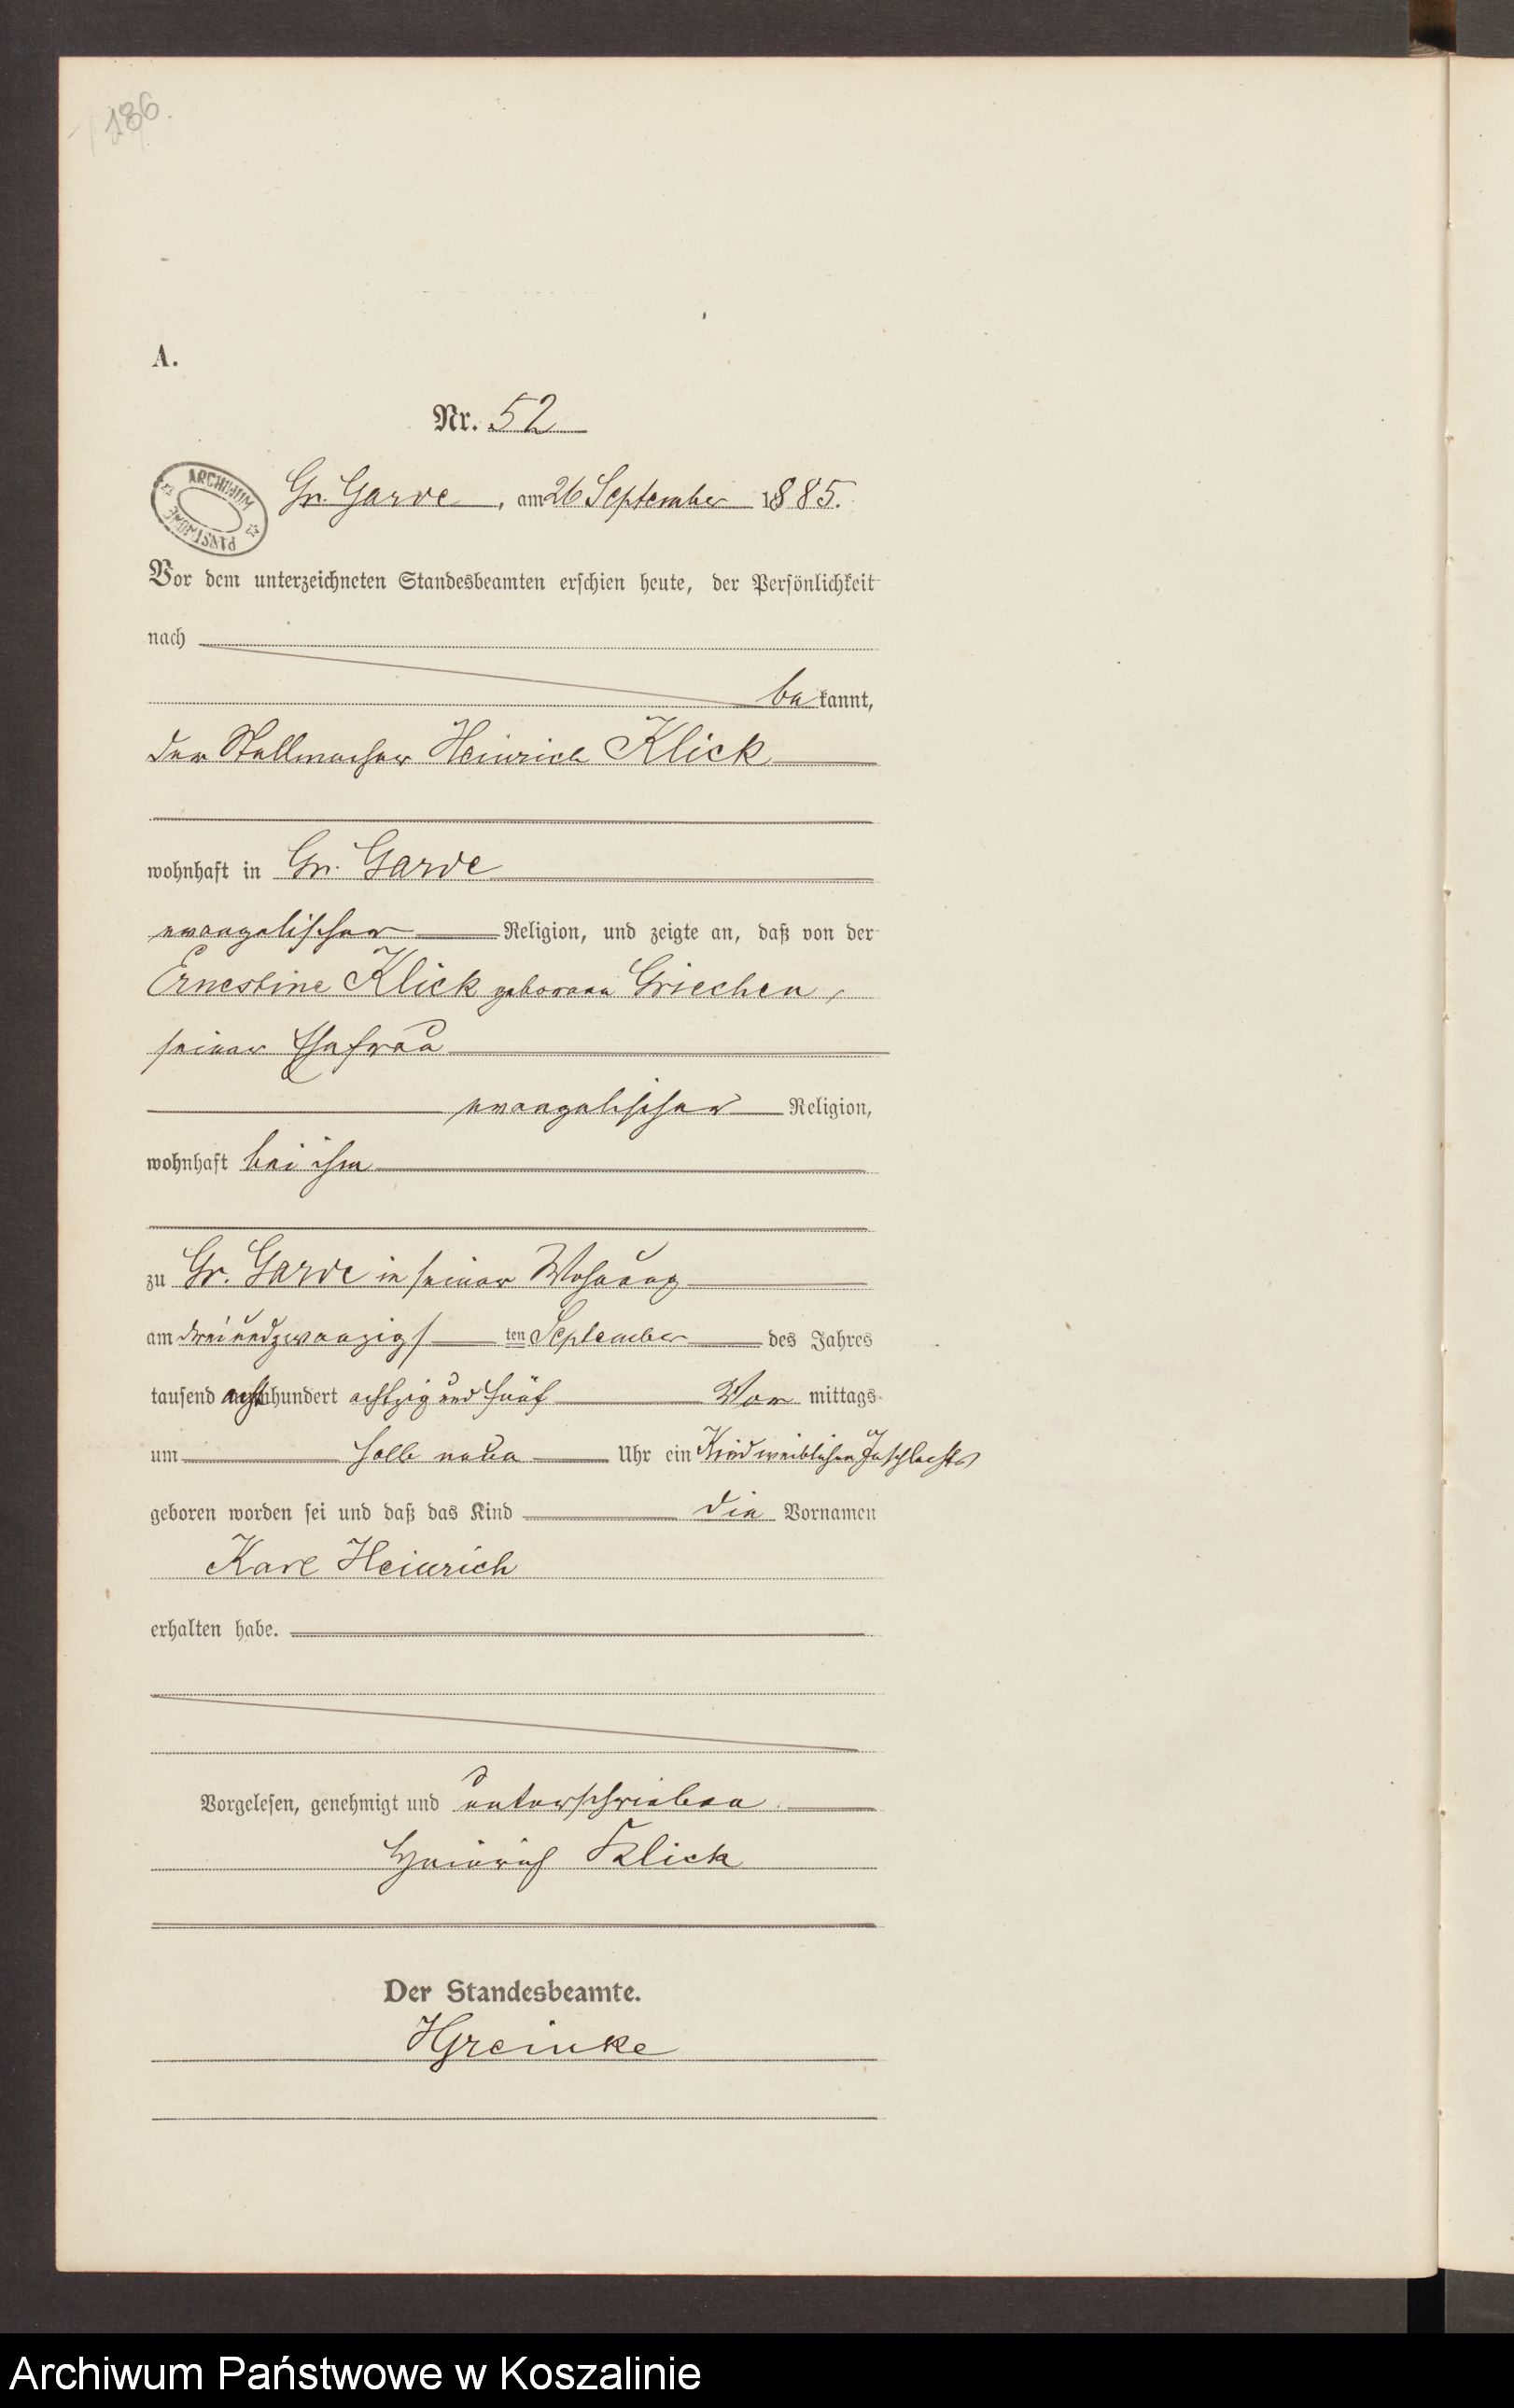 136.
A.
Nr. 52
ARCHIWUM PAŃSTWOWE
Gr. Garde, am 26 September 1885.
Vor dem unterzeichneten Standesbeamten erschien heute, der Persönlichkeit
nach
bekannt,
der Stellmacher Heinrich Klick
wohnhaft in Gr. Garde
evangelischer Religion, und zeigte an, daß von der
Ernestine Klick geborene Griechen,
seiner Ehefrau
evangelischer Religion,
wohnhaft bei ihm
zu Gr. Garde in seiner Wohnung
am dreiundzwanzigsten September des Jahres
tausend achthundert achtzig und fünf Vor mittags
um halb neun Uhr ein Kind weiblichen Geschlechts
geboren worden sei und daß das Kind die Vornamen
Karl Heinrich
erhalten habe.
Vorgelesen, genehmigt und unterschrieben
Heinrich Klick
Der Standesbeamte.
HGreinke
Archiwum Państwowe w Koszalinie